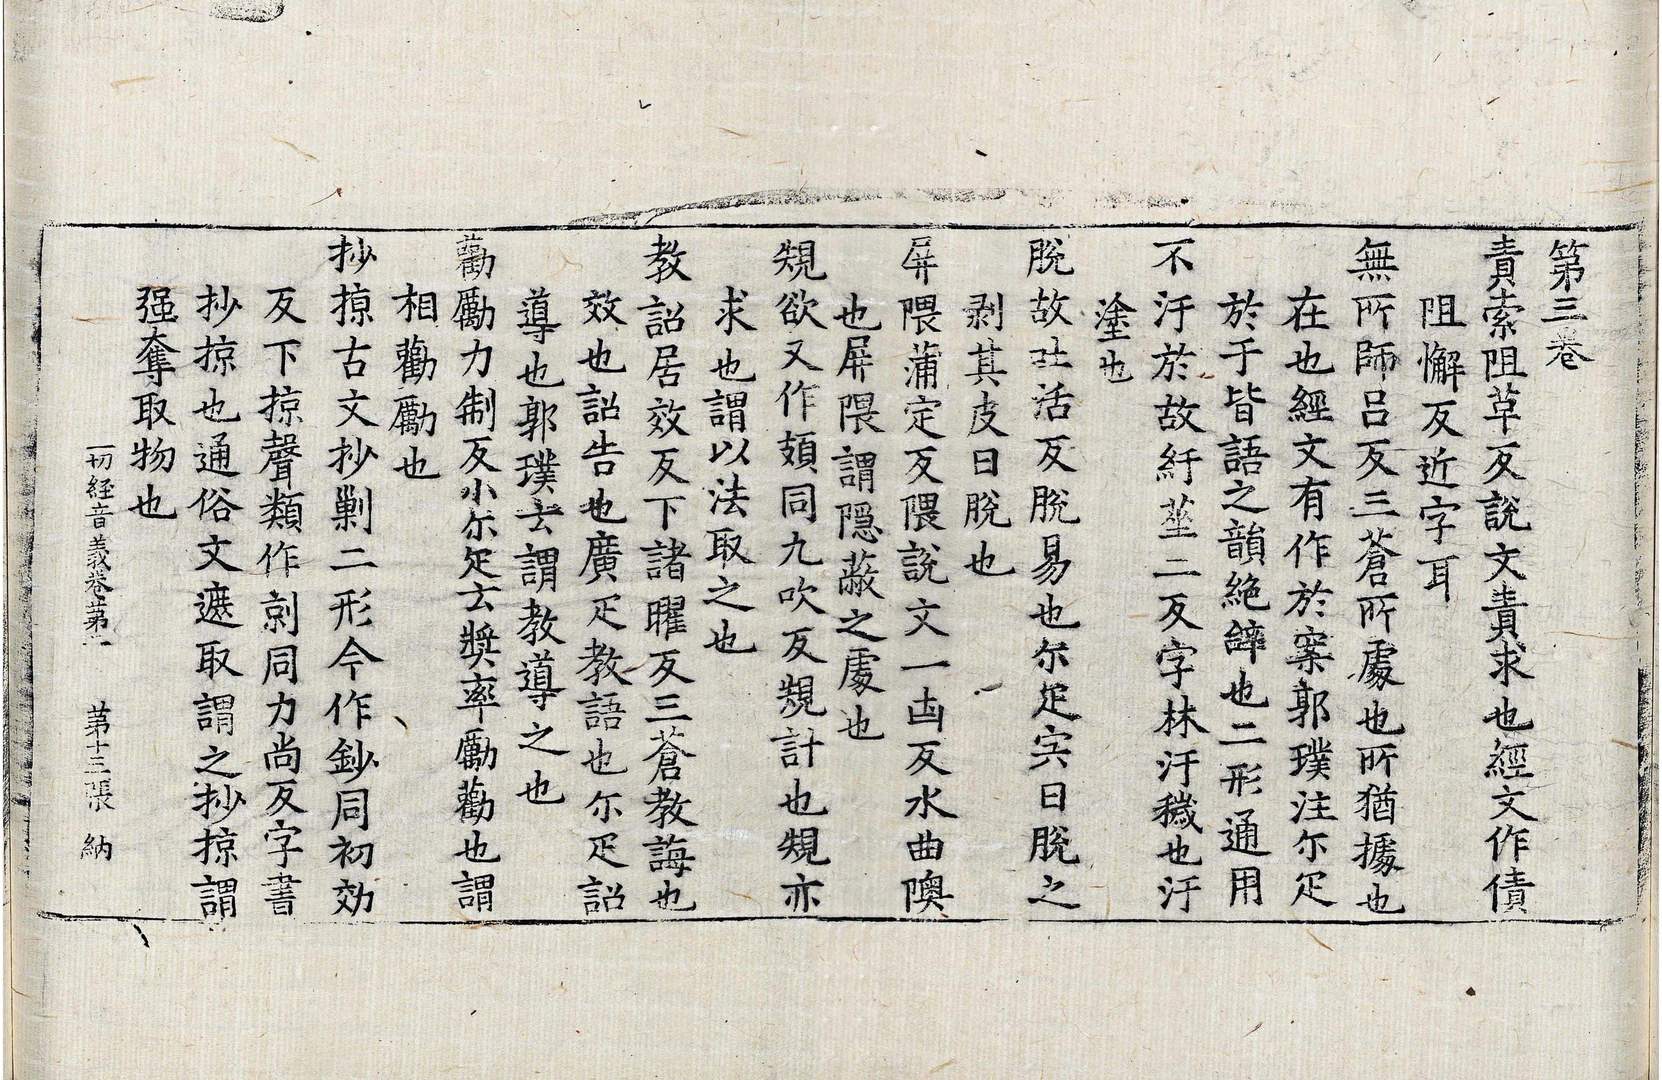 第三卷
責索阻草反說文責求也經文作債
阻懈反近字耳
無所師呂反三蒼所處也所猶據也
在也經文有作於案郭璞注尒疋
於于皆語之韻絶辤也二形通用
不汙於故紆莝二反字林汙穢也汙
塗也
脫故吐活反脫易也尒疋宍曰脫之
剥其皮曰脫也
屏隈蒲定反隈說文一𠙽反水曲隩
也屏隈謂隱蔽之處也
䂓欲又作頍同九吹反䂓計也䂓亦
求也謂以法取之也
教詔居效反下諸曜反三蒼教誨也
效也詔告也廣疋教語也尒疋詔
導也郭璞云謂教導之也
勸勵力制反小尒疋云獎率勵勸也謂
相勸勵也
抄掠古文抄剿二形今作鈔同初効
反下掠聲類作剠同力尚反字書
抄掠也通俗文遮取謂之抄掠謂
强奪取物也
一切經音義卷第　第十三張　納